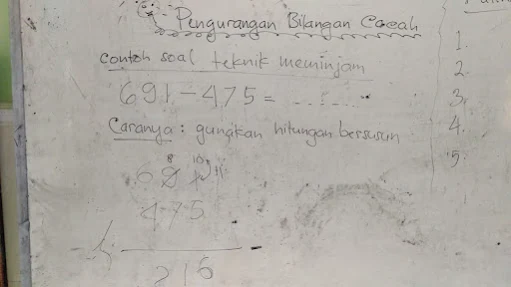 Pengurangan Bilangan Cacah
Contoh soal teknik meminjam
691-475 = ........
Caranya : gunakan hitungan bersusun
8 10
691 11
475
-
216
1.
2.
3.
4.
5.